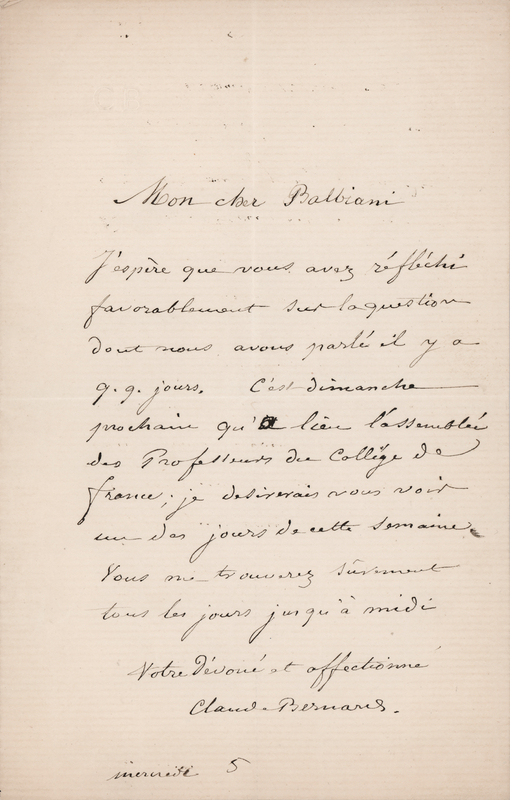 Mon cher Balbiani
J'espère que vous avez réfléchi
favorablement sur la question
dont nous avons parlé il y a
q.q. jours. C'est dimanche
prochain qu'a lieu l'assemblée
des Professeurs du Collège de
france; je desirerais vous voir
un des jours de cette semaine.
Vous me trouverez sûrement
tous les jours jusqu'à midi
Votre Dévoué et affectionné
Claude Bernard.
mercredi 5